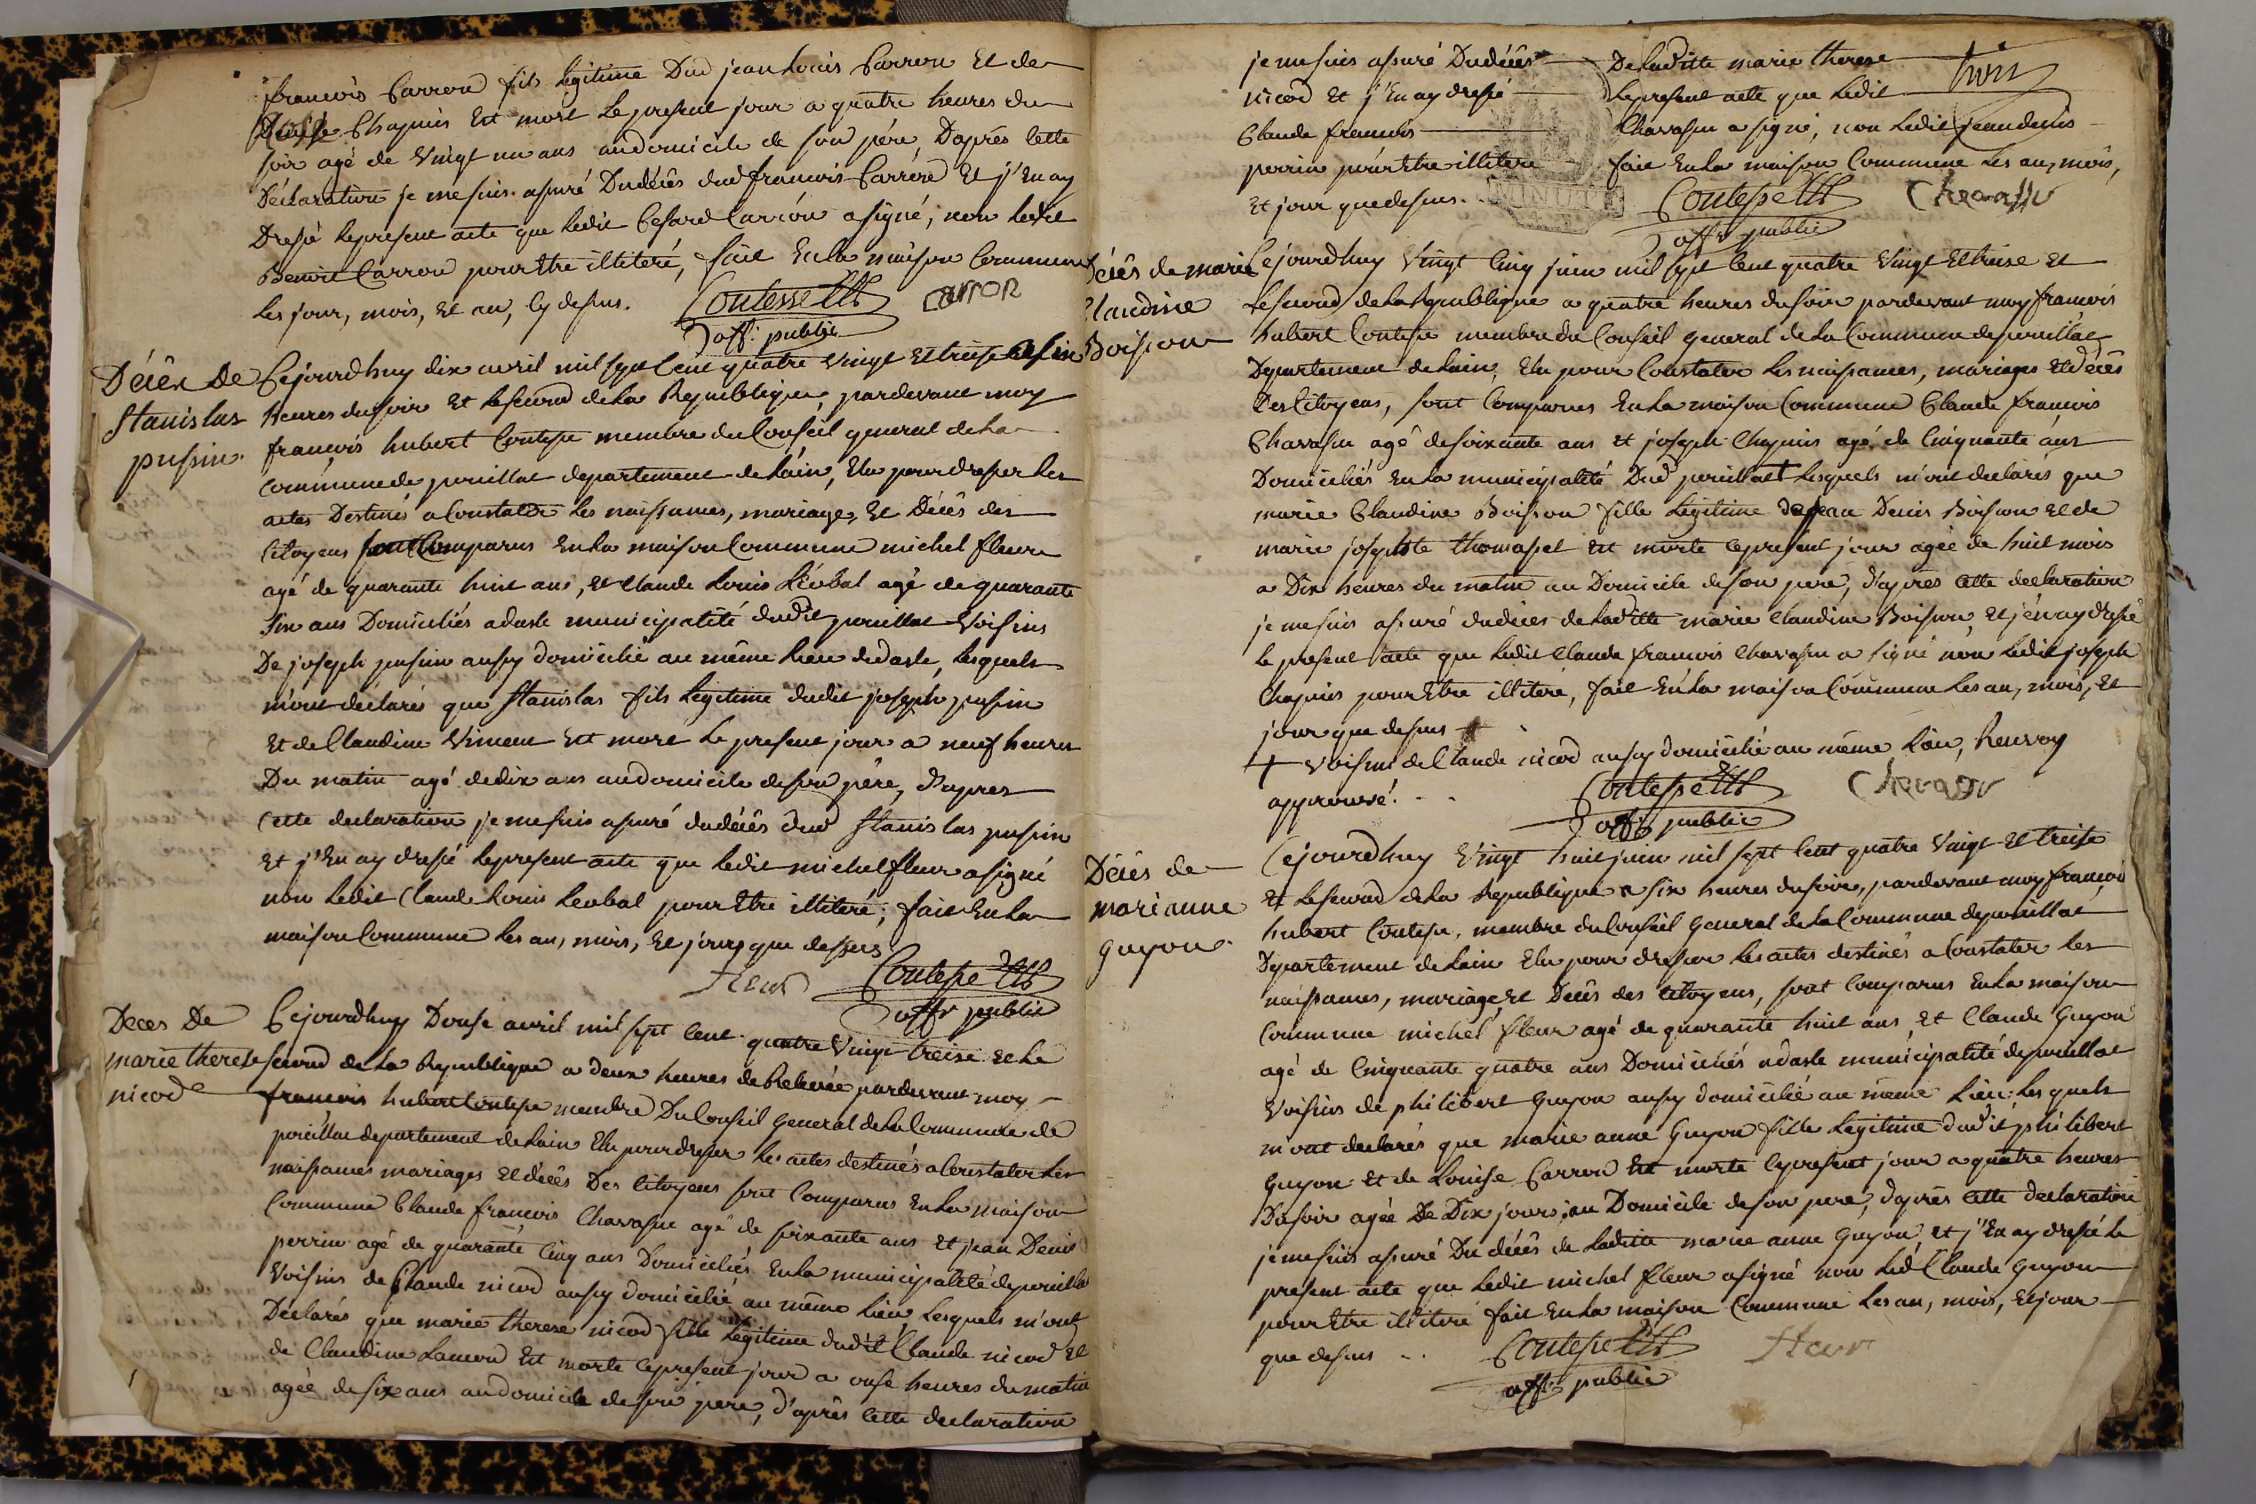 francois Carron fils legitime Dud jean Louis Carron Et de
Chapuis Est mort Le present jour a quatre heures du
soir agé de Vingt un ans au domicile de son pére, D'aprés Cette
Déclaration je me suis assuré Du décés dud francois Carron Et j'En ay
Dressé Le present acte que Ledit Cesard Carron a signé, non Ledit
Benoit Carron pour Etre illiteré, fait En La maison Commune
Les jour, mois, Et an, Cy dessus.
Contesse
carron
off. public
Décés De
Stanislas
pussin.
Cejourdhuy dix avril mil sept Cent quatre Vingt Et treise a six
heures du soir Et Le second de La Republique, pardevant moy
francois hubert Contesse membre du Conseil general de La
Commune de pouillat departement de L'ain, Elu pour dresser Les
actes Destinés a Constater Les naissances, mariages, Et Décés des
Citoyens sont Comparus En La maison Commune michel fleur
agé de quarante huit ans, et Claude Louis Léobal agé de quarante
six ans Domiciliés a dasle municipalité dudit pouillat Voisins
De joseph pussin aussy domicilié au même Lieu de dasle, Lesquels
m'ont déclarés que Stanislas fils Legitime dudit joseph pussin
Et de Claudine Vincent Est mort Le present jour a neuf heures
Du matin agé de dix ans au domicile de son pére, D'aprés
Cette declaration je me suis assuré du décés dud Stanislas pussin
Et j'En ay dressé Le present acte que Ledit michel fleur a signé
non Ledit Claude Louis Leobal pour Etre illiteré, fait En La
maison Commune Les an, mois, Et jours que dessus
fleur
Contesse
offr public
Decés De
marie therese
nicod
Cejourdhuy Douse avril mil sept Cent quatre Vingt treise Et Le
second de La Republique a deux heures de Relevée pardevant moy
francois hubert Contesse membre Du Conseil general de La Commune de
pouillat departement de Lain Elu pour dresser Les actes destinés a Constater Les
naissances mariages Et décés Des Citoyens sont Comparus En La maison
Commune Claude francois Chavassu agé de soixante ans Et jean Denis
perrin agé de quarante Cinq ans Domiciliés En La municipalité de pouillat
Voisins de Claude nicod aussy domicilié au même Lieu, Lesquels m'ont
Déclarés que marie therese nicod fille Legitime dudit Claude nicod Et
de Claudine Lamon Est morte Ce present jour a onse heures du matin
agée de six ans au domicile de son pere, d'aprés Cette declaration
je me suis assuré Du décés De Laditte marie therese
nicod Et j'En ay dressé Le present acte que Ledit
Claude francois Chavassu a signé, non Ledit jean denis
perrin pour Etre illiteré fait En La maison Commune Les an, mois,
Et jour que dessus.
MINUTE
Contesse
offr public
Décés de marie
Claudine
Boisson
Cejourdhuy Vingt Cinq juin mil sept Cent quatre Vingt Et treise Et
Le second de La Republique a quatre heures du soir pardevant moy francois
hubert Contesse membre du Conseil general de La Commune de pouillat
Departement de Lain, Elu pour Constater Les naissances, mariages Et décés
Des Citoyens, sont Comparus En La maison Commune Claude francois
Chavassu agé de soixante ans et joseph Chapuis agé de Cinquante ans
Domiciliés En La municipalité Dud pouillat + Lesquels m'ont declarés que
marie Claudine Boisson fille Legitime de jean Denis Boisson Et de
marie josephte thomasset Est morte Ce present jour agée de huit mois
a Dix heures du matin au Domicile de son pere, d'aprés Cette declaration
je me suis assuré du décés de Laditte marie Claudine Boisson, Et j'en ay dressé
Le present acte que Ledit Claude francois Chavassu a signé non Ledit joseph
Chapuis pour Etre illiteré, fait En La maison Commune Les an, mois, Et
jour que dessus
+ Voisins de Claude nicod aussy domicilié au même Lieu, Renvoy
approuvé.
Contesse
offr public
Décés de
marianne
guyon.
Cejourdhuy Vingt huit juin mil sept Cent quatre Vingt Et treise
Et Le second de La Republique a six heures du soir, pardevant moy francois
hubert Contesse, membre du Conseil general de La Commune de pouillat
Departement de Lain Elu pour dresser Les actes destinés a Constater Les
naissances, mariages, Et Décés des Citoyens, sont Comparus En La maison
Commune michel fleur agé de quarante huit ans, Et Claude Guyon
agé de Cinquante quatre ans Domiciliés a dasle municipalité de pouillat
Voisins de philibert Guyon aussy domicilié au même Lieu, Lesquels
m'ont declarés que marie anne Guyon fille Legitime dudit philibert
Guyon Et de Louise Carron Est morte Ce present jour a quatre heures
Du soir agée De Dix jours, au Domicile de son pere, d'aprés Cette declaration
je me suis assuré Du décés de Laditte marie anne Guyon, et j'En ay dressé Le
present acte que Ledit michel fleur a signé non Led Claude Guyon
pour Etre illiteré fait En La maison Commune Les an, mois, Et jour
que dessus
Contesse
fleur
offr public